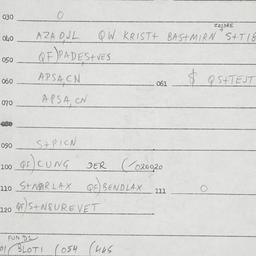 030 0
040 AZADJL QW KRIST+ BAS+MIRN S+TIB
050 QF)PADES+VES
060 APSA,CN 061 $ QS+TEJT
070 APSA,CN
080
090 S+PICN
100 QF)CUNG JER (/020920
110 S+NORLAX QF)BENDLAX 111 0
120 QF)S+NSUREVET
FUNDS
01/3LOT1 (054 (465